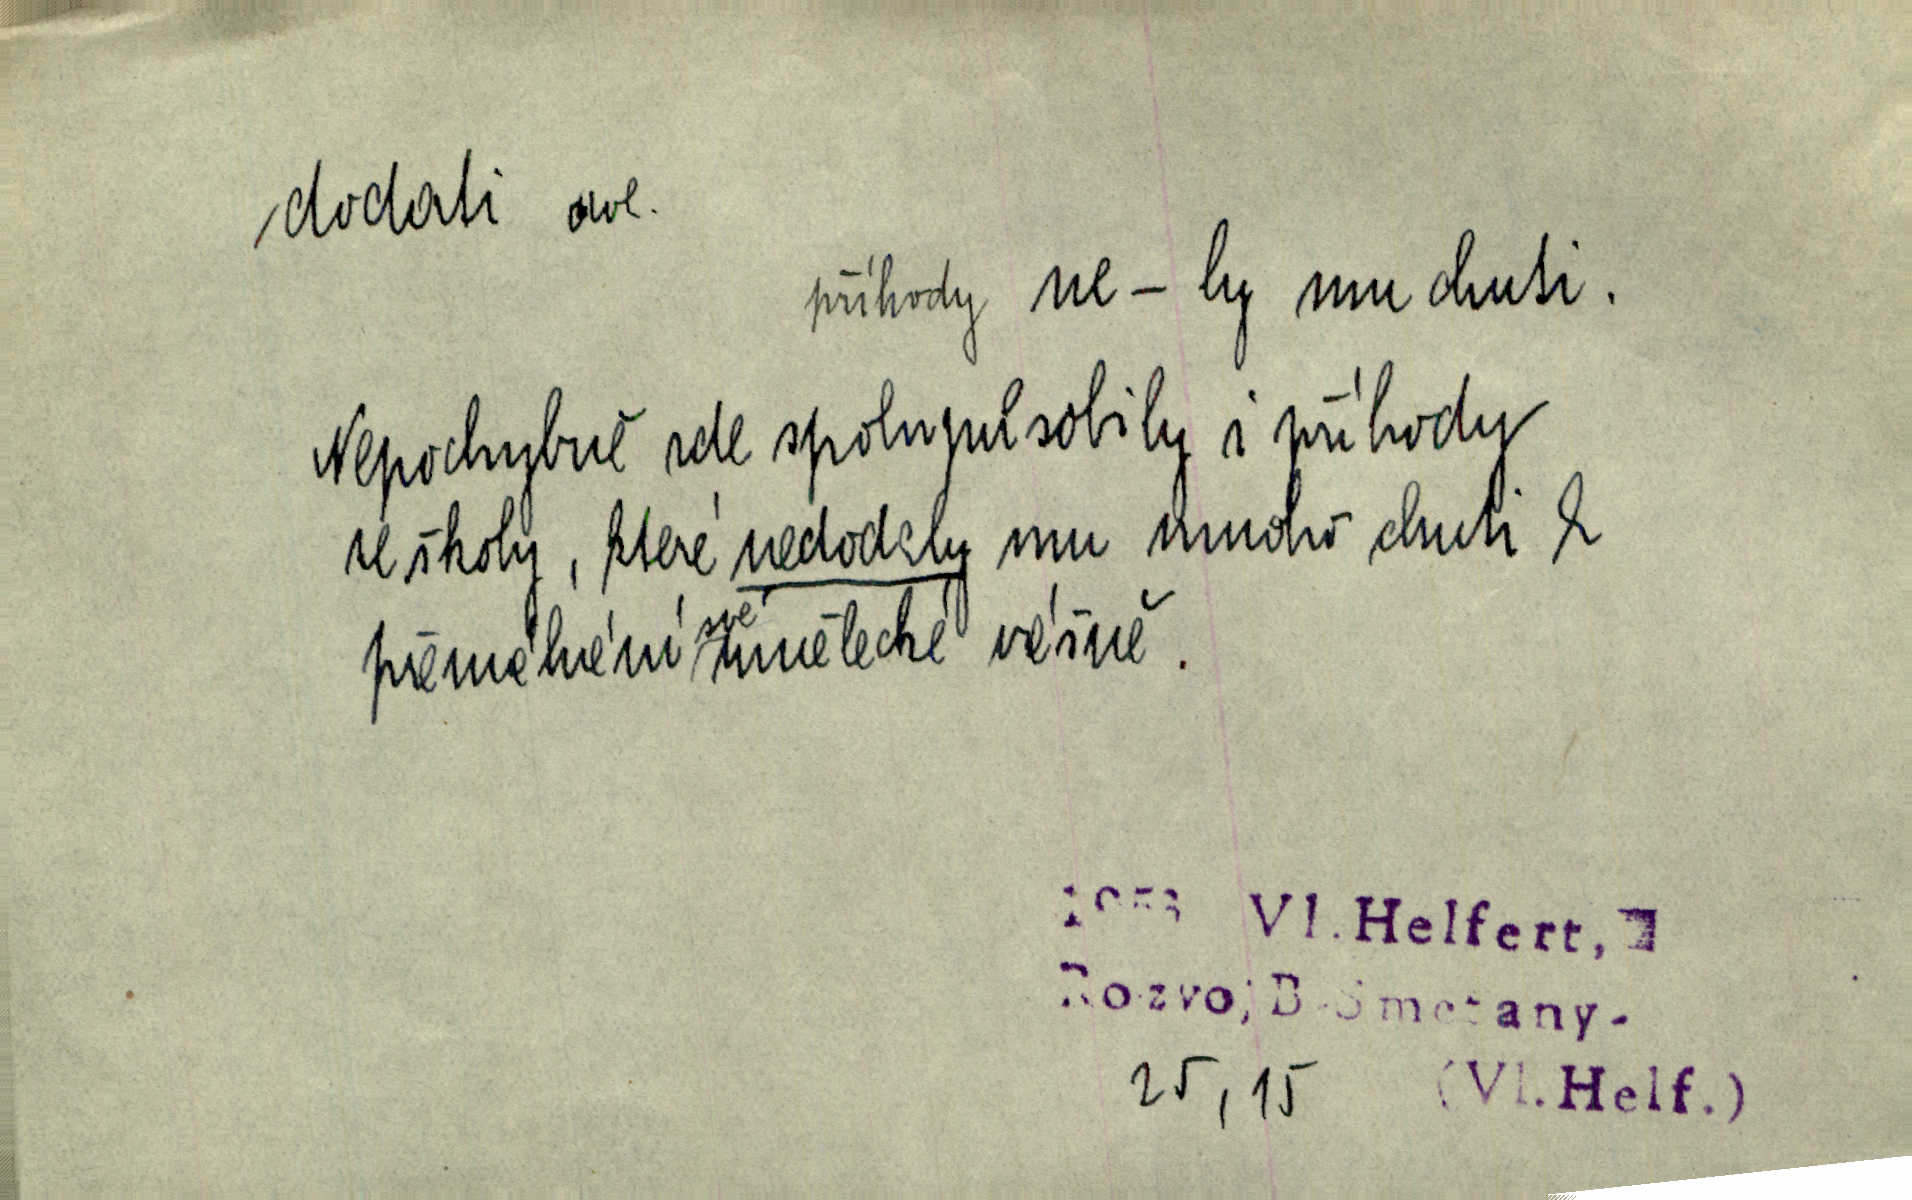 dodati
příhody ne – ly mu chuti.
Nepochybně zde spolupůsobily i příhody
ze školy, které nedodaly mu mnoho chuti k
přemáhání své umělecké vášně.
1953 Vl. Helfert,
Rozvoj B. Smetany-
25,15 (Vl. Helf.)